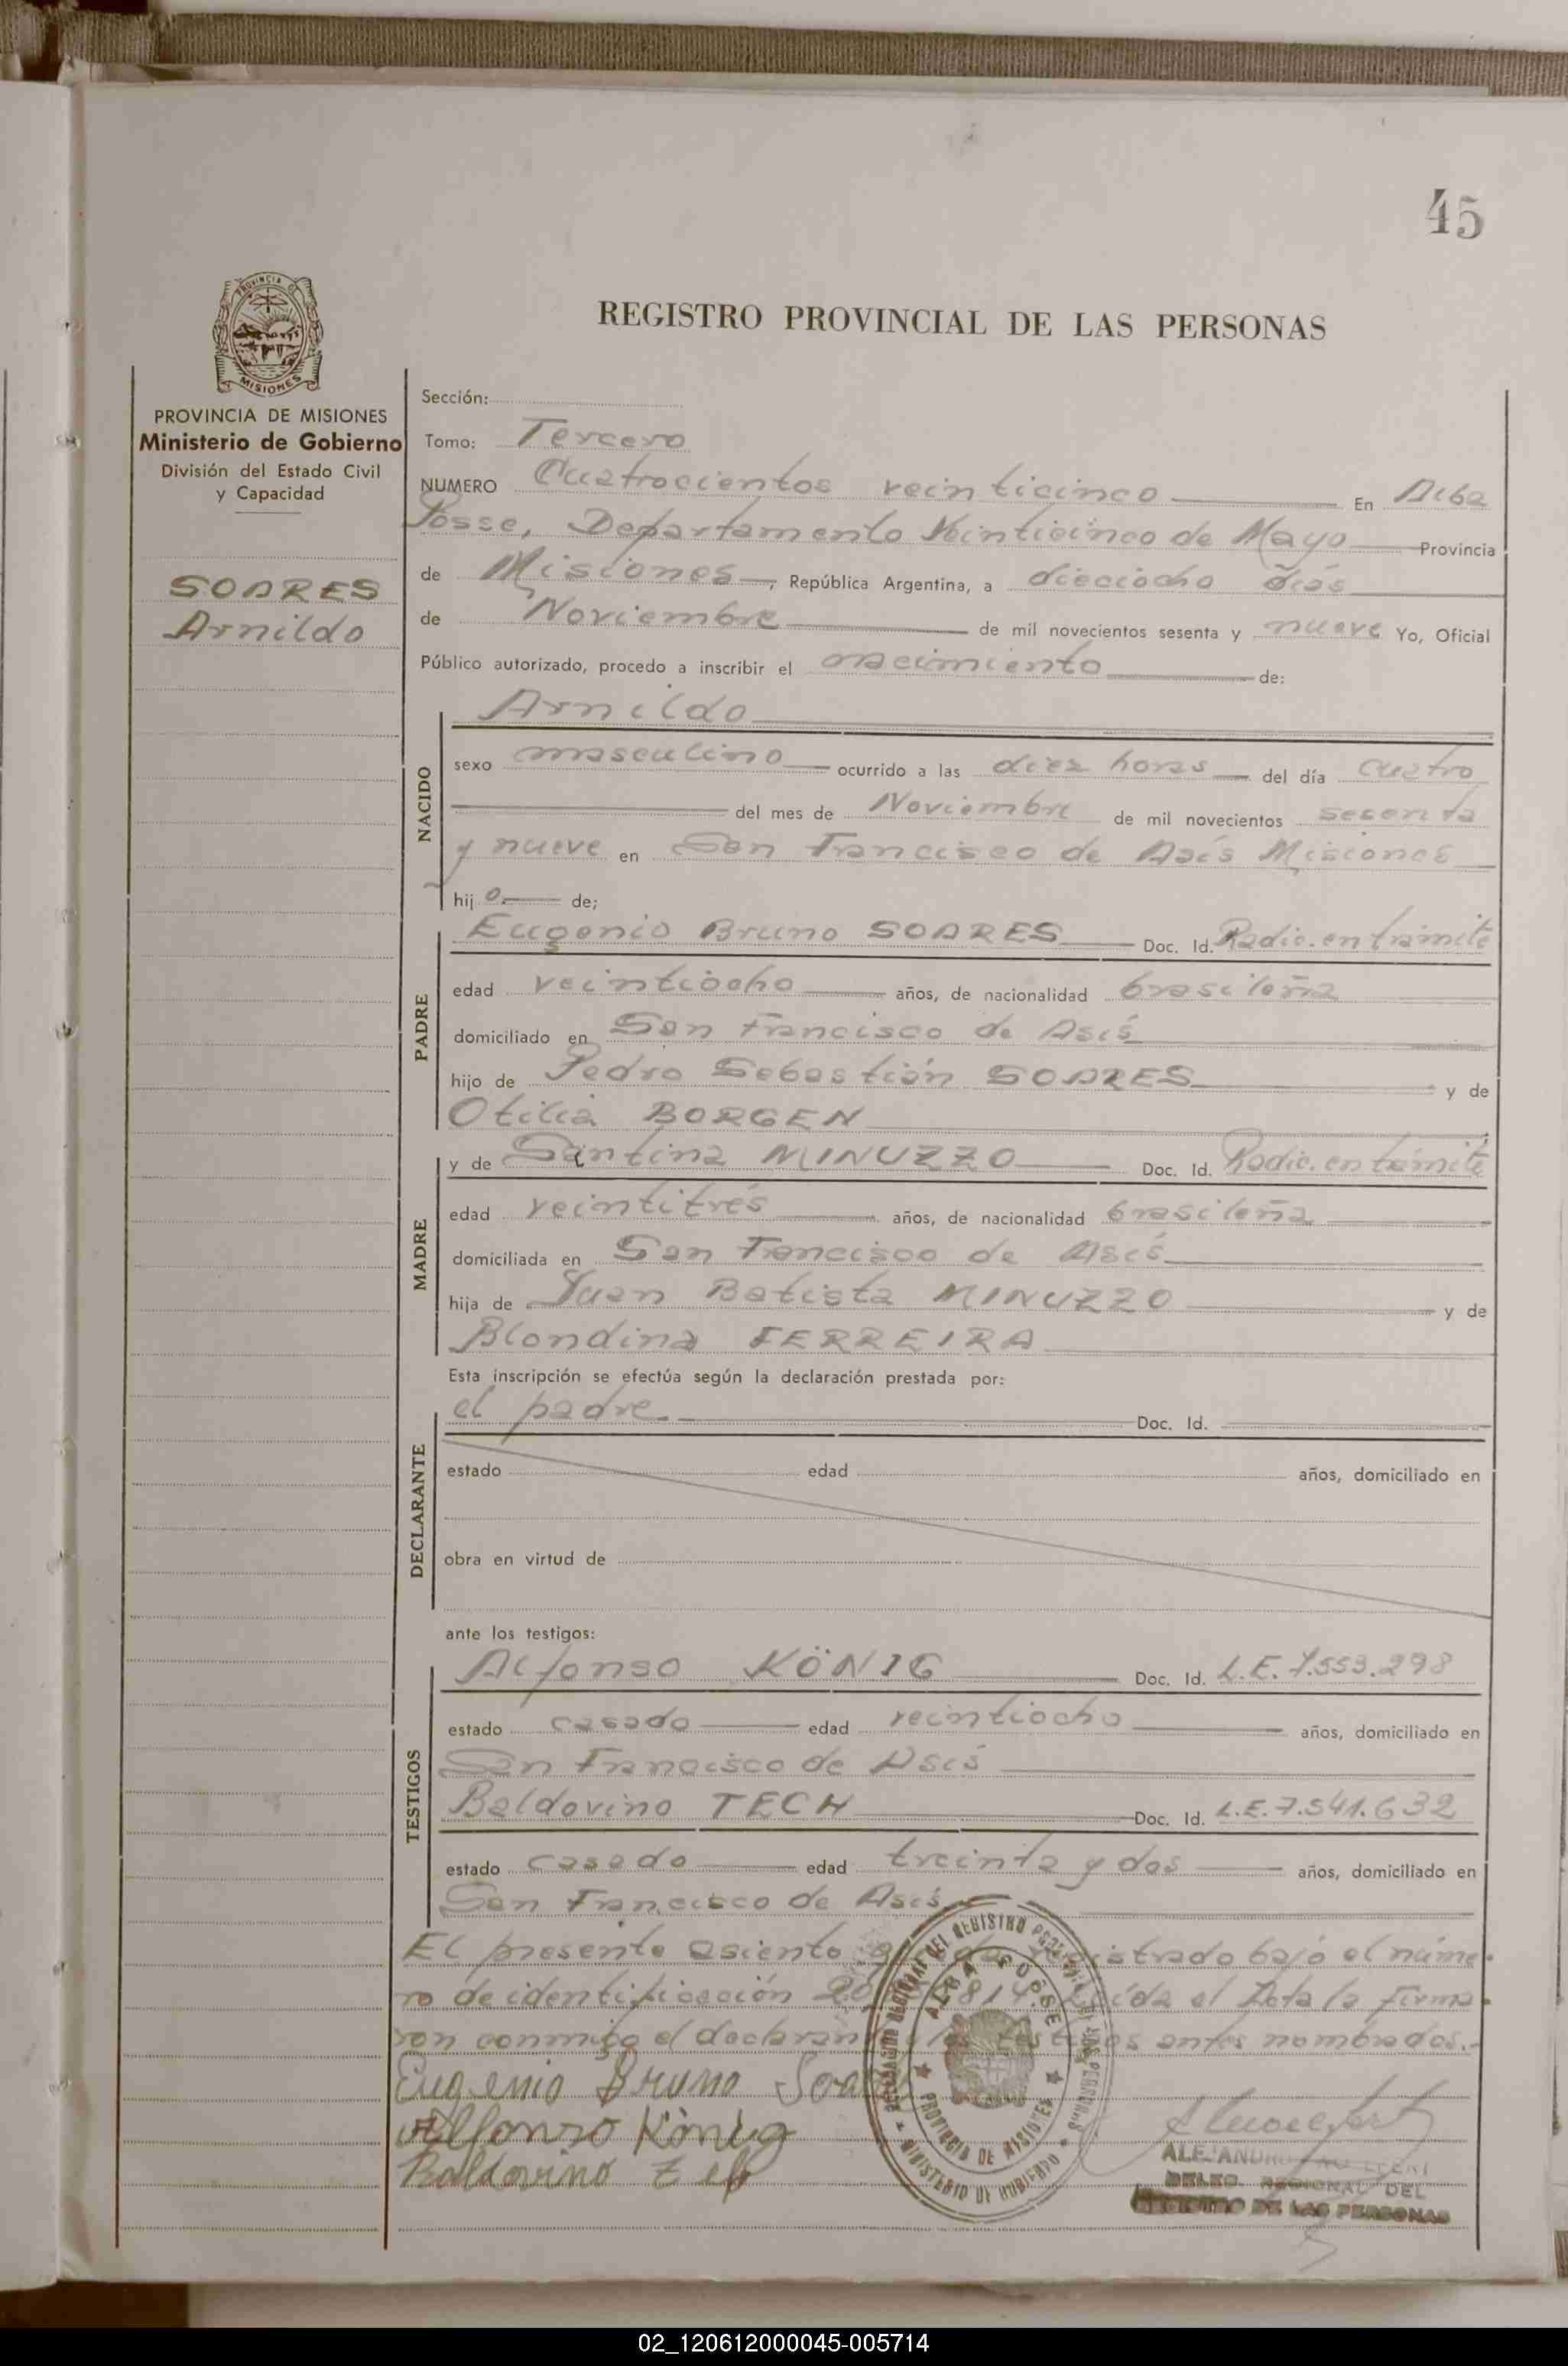 45
PROVINCIA DE
MISIONES
REGISTRO PROVINCIAL DE LAS PERSONAS
PROVINCIA DE MISIONES
Ministerio de Gobierno
División del Estado Civil
y Capacidad
SOARES
Arnildo
Sección:
Tomo: Tercero
NUMERO Cuatrocientos veinticinco En Alba
Posse, Departamento Veinticinco de Mayo Provincia
de Misiones, República Argentina, a dieciocho días
de Noviembre de mil novecientos sesenta y nueve Yo, Oficial
Público autorizado, procedo a inscribir el nacimiento de:
NACIDO
Arnildo
sexo masculino ocurrido a las diez horas del día cuatro
del mes de Noviembre de mil novecientos sesenta
y nueve en San Francisco de Asís Misiones
hij o. de;
PADRE
Eugenio Bruno SOARES Doc. Id. Radic. en trámite
edad veintiocho años, de nacionalidad brasileña
domiciliado en San Francisco de Asís
hijo de Pedro Sebastián SOARES y de
Otilia BORGEN
MADRE
y de Santina MINUZZO Doc. Id. Radic. en trámite
edad veintitrés años, de nacionalidad brasileña
domiciliada en San Francisco de Asís
hija de Juan Batista MINUZZO y de
Blondina FERREIRA
Esta inscripción se efectúa según la declaración prestada por:
DECLARANTE
el padre. Doc. Id.
estado edad años, domiciliado en
obra en virtud de
ante los testigos:
TESTIGOS
Alfonso KÖNIG Doc. Id. L.E. 7.553.298
estado casado edad veintiocho años, domiciliado en
San Francisco de Asís
Baldovino TECH Doc. Id. L.E. 7.541.632
estado casado edad treinta y dos años, domiciliado en
San Francisco de Asís
El presente asiento registrado bajo el núme-
ro de identificación el Acta la firma-
ron conmigo el antes nombrados.-
Eugenio Bruno
Alfonso König
Baldovino
ALBA POSSE
PROVINCIA DE MISIONES
MINISTERIO DE GOBIERNO
DELEG. REGIONAL DEL
REGISTRO DE LAS PERSONAS
02_120612000045-005714